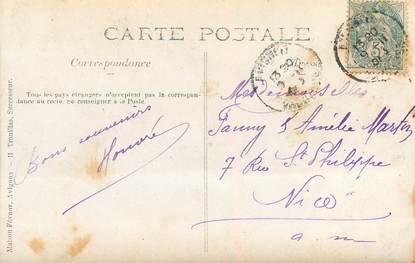 CARTE POSTALE
Correspondance
Tous les pays étrangers n'acceptent pas la correspon-
dance au recto, se renseigner à la Poste.
Bons souvenirs
Honoré
Mesdemoiselles
Fanny & Amélie Martin
7 Rue St Philippe
Nice
a. m
Maison Février, Avignon — H. Trouillas, Successeur.